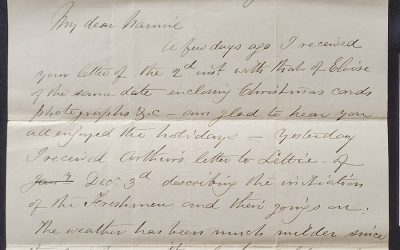 My dear Nannie
A few days ago I received
your letter of the 2d inst with that of Eloise
of the same date enclosing Christmas cards
photographs &c - am glad to hear you
all enjoyed the holidays - Yesterday
I received Arthurs letter to Lettie - of
Jan 3 Dec. 3d describing the initiation
of the Freshmen and their goings on.
The weather has been much milder since